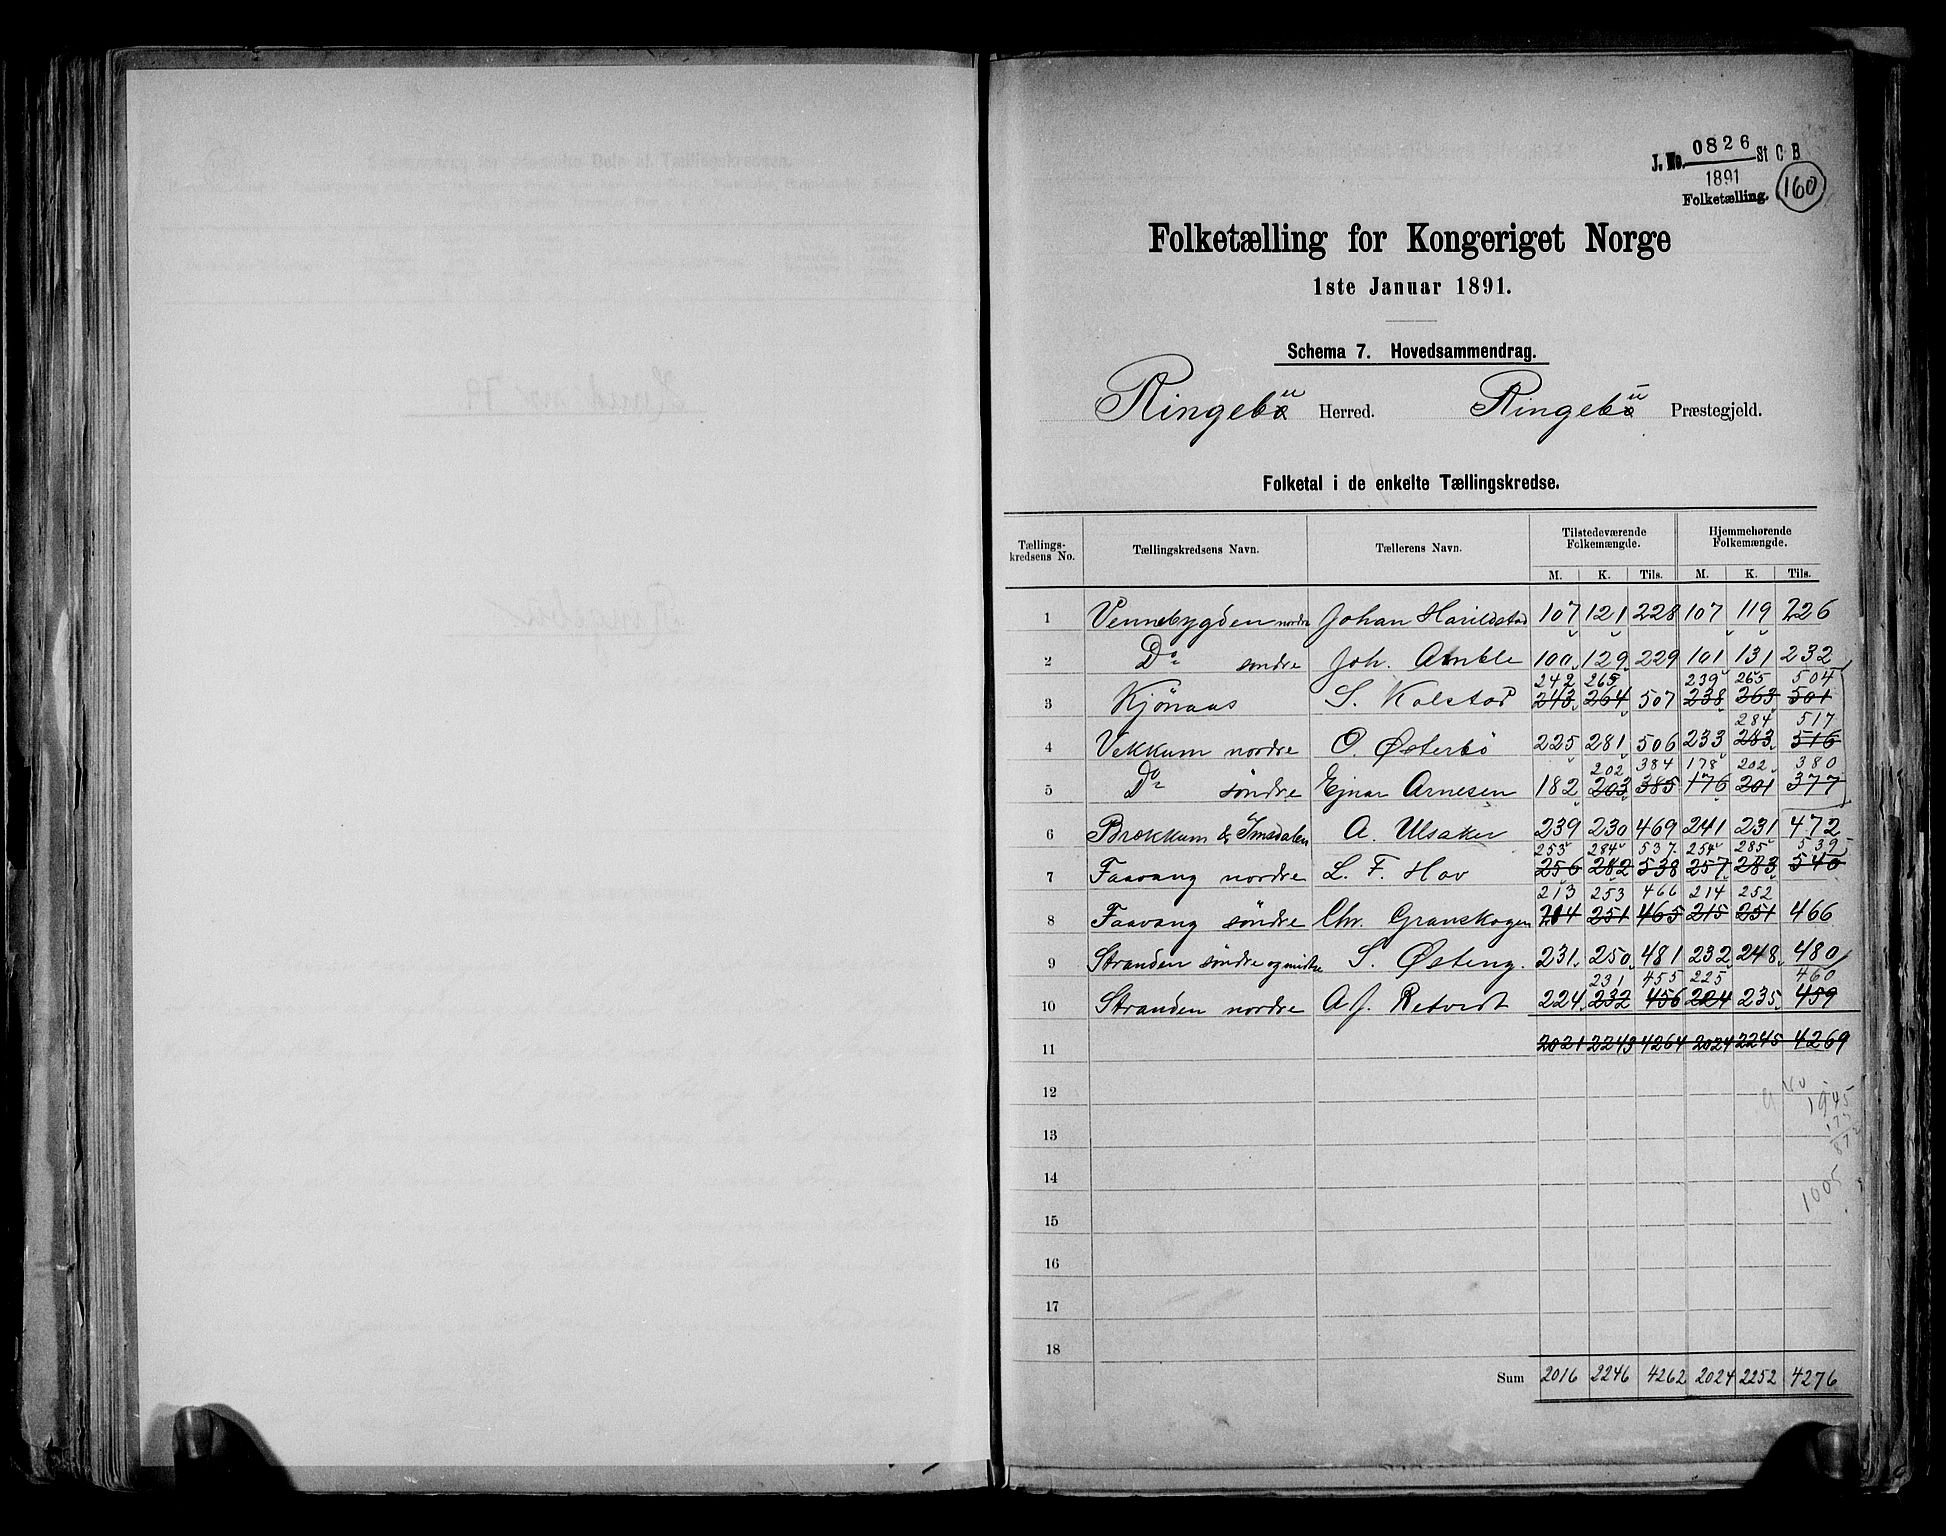 J. No. 0826 St C B
1891
Folketælling. 160
Folketælling for Kongeriget Norge
1ste Januar 1891.
Schema 7. Hovedsammendrag.
Ringebu Herred. Ringebu Præstegjeld.
Folketal i de enkelte Tællingskredse.
Tællings-kredsens No. Tællingskredsens Navn. Tællerens Navn. Tilstedeværende Folkemængde. Hjemmehørende Folkemængde.
M. K. Tils. M. K. Tils.
1 Vennebygden nordre Johan Harildstad 107 121 228 107 119 226
2 Do søndre Joh. Amble 100 129 229 101 131 232
242 265 239 265 504
3 Kjønaas S. Kolstad 243 264 507 238 263 501
284 517
4 Vekkum nordre O. Østerbö 225 281 506 233 283 516
202 384 178 202 380
5 Do söndre Ejnar Arnesen 182 203 385 176 201 377
6 Brækkum & Imsdalen A. Ulsaker 239 230 469 241 231 472
253 284 537 254 285 539
7 Faavang nordre L. F. Hov 256 282 538 257 283 540
213 253 466 214 252
8 Faavang söndre Chr. Granskogen 214 251 465 215 251 466
9 Stranden söndre og midtre S. Østeng. 231 250 481 232 248 480
231 455 225 460
10 Stranden nordre A. J. Retvedt 224 232 456 224 235 459
11 2021 2243 4264 2024 2245 4269
12
13
14
1005
15
16
17
18
Sum 2016 2246 4262 2024 2252 4276